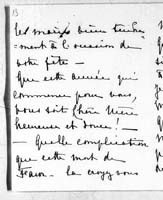 13
les mains bien tendre
-ment à l'occasion de
votre fête –
Que cette année qui
commence pour vous,
vous soit chère Mère
heureuse et douce ! –
– Quelle complication
que cette mort de
la croyez vous